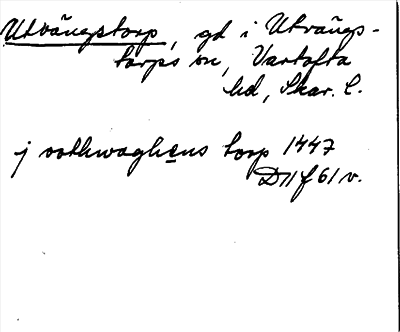 Utvängstorp, gd i Utvängs-
torps sn, Vartofta
hd, Skar. l.
j vothwaghens torp 1447
D 11 f 61 v.